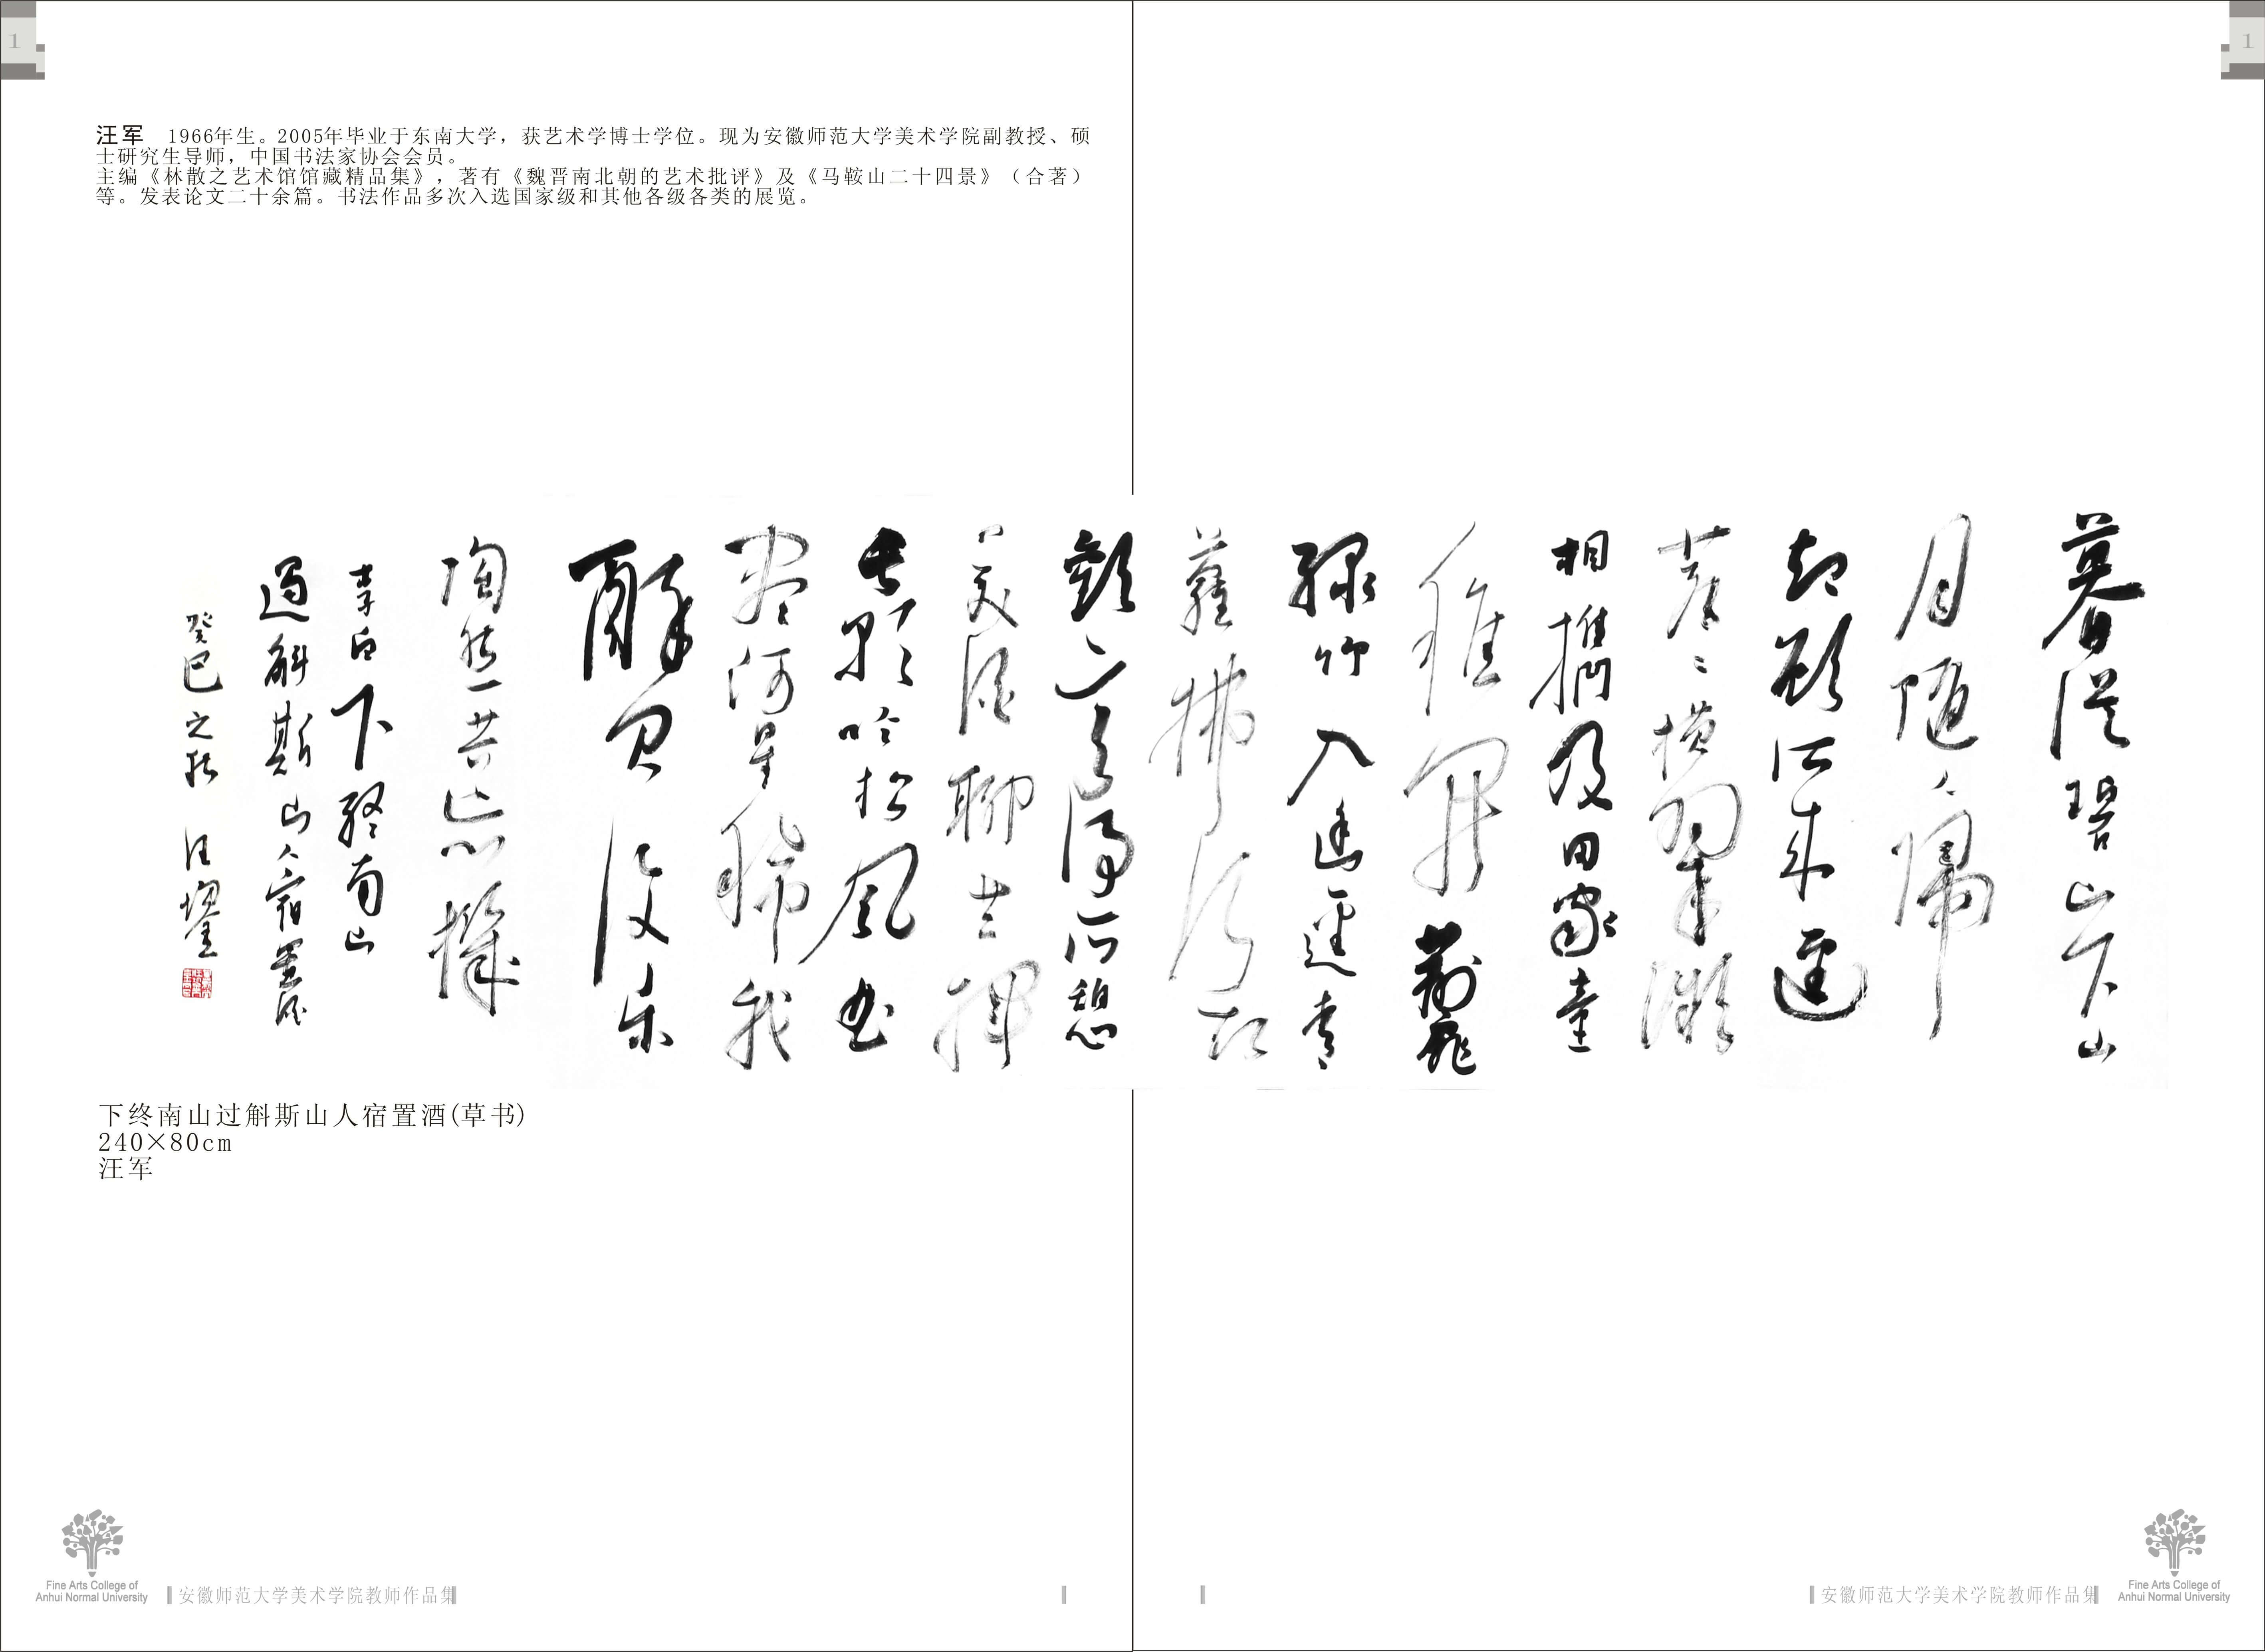 1
1
汪军 1966年生。2005年毕业于东南大学，获艺术学博士学位。现为安徽师范大学美术学院副教授、硕
士研究生导师，中国书法家协会会员。
主编《林散之艺术馆馆藏精品集》，著有《魏晋南北朝的艺术批评》及《马鞍山二十四景》（合著）
等。发表论文二十余篇。书法作品多次入选国家级和其他各级各类的展览。
暮從碧山下山
月隨人歸
却顧所來逕
蒼〻橫翠微
相攜及田家童
稚開荊扉
綠竹入幽逕青
蘿拂行衣
歡言得所憩
美酒聊共揮
長歌吟松風曲
盡河星稀我
醉君復樂
陶然共忘機
李白下終南山
過斛斯山人宿置酒
癸巳之秋 汪
下终南山过斛斯山人宿置酒(草书)
240×80cm
汪军
Fine Arts College of
Anhui Normal University
安徽师范大学美术学院教师作品集
安徽师范大学美术学院教师作品集
Fine Arts College of
Anhui Normal University